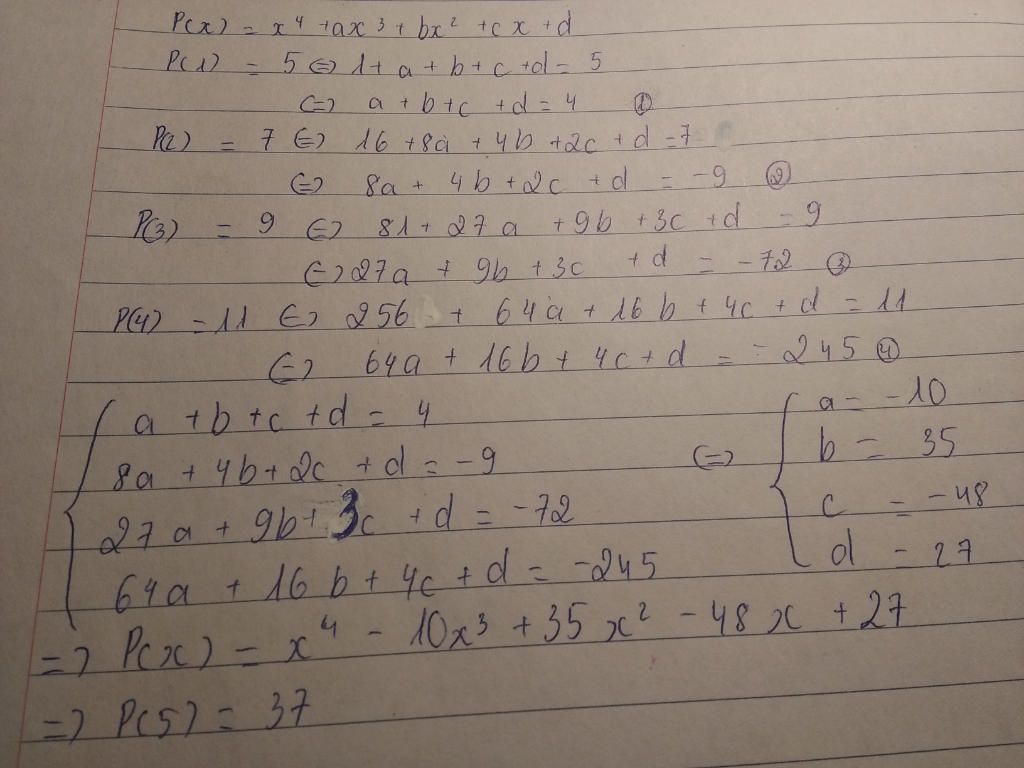 P(x) = x⁴ + ax³ + bx² + cx + d
P(1) = 5 ⇔ 1 + a + b + c + d = 5
⇔ a + b + c + d = 4 ①
P(2) = 7 ⇔ 16 + 8a + 4b + 2c + d = 7
⇔ 8a + 4b + 2c + d = -9 ②
P(3) = 9 ⇔ 81 + 27a + 9b + 3c + d = 9
⇔ 27a + 9b + 3c + d = -72 ③
P(4) = 11 ⇔ 256 + 64a + 16b + 4c + d = 11
⇔ 64a + 16b + 4c + d = -245 ④
a + b + c + d = 4
8a + 4b + 2c + d = -9
27a + 9b + 3c + d = -72
64a + 16b + 4c + d = -245
⇔
a = -10
b = 35
c = -48
d = 27
=> P(x) = x⁴ - 10x³ + 35x² - 48x + 27
=> P(5) = 37